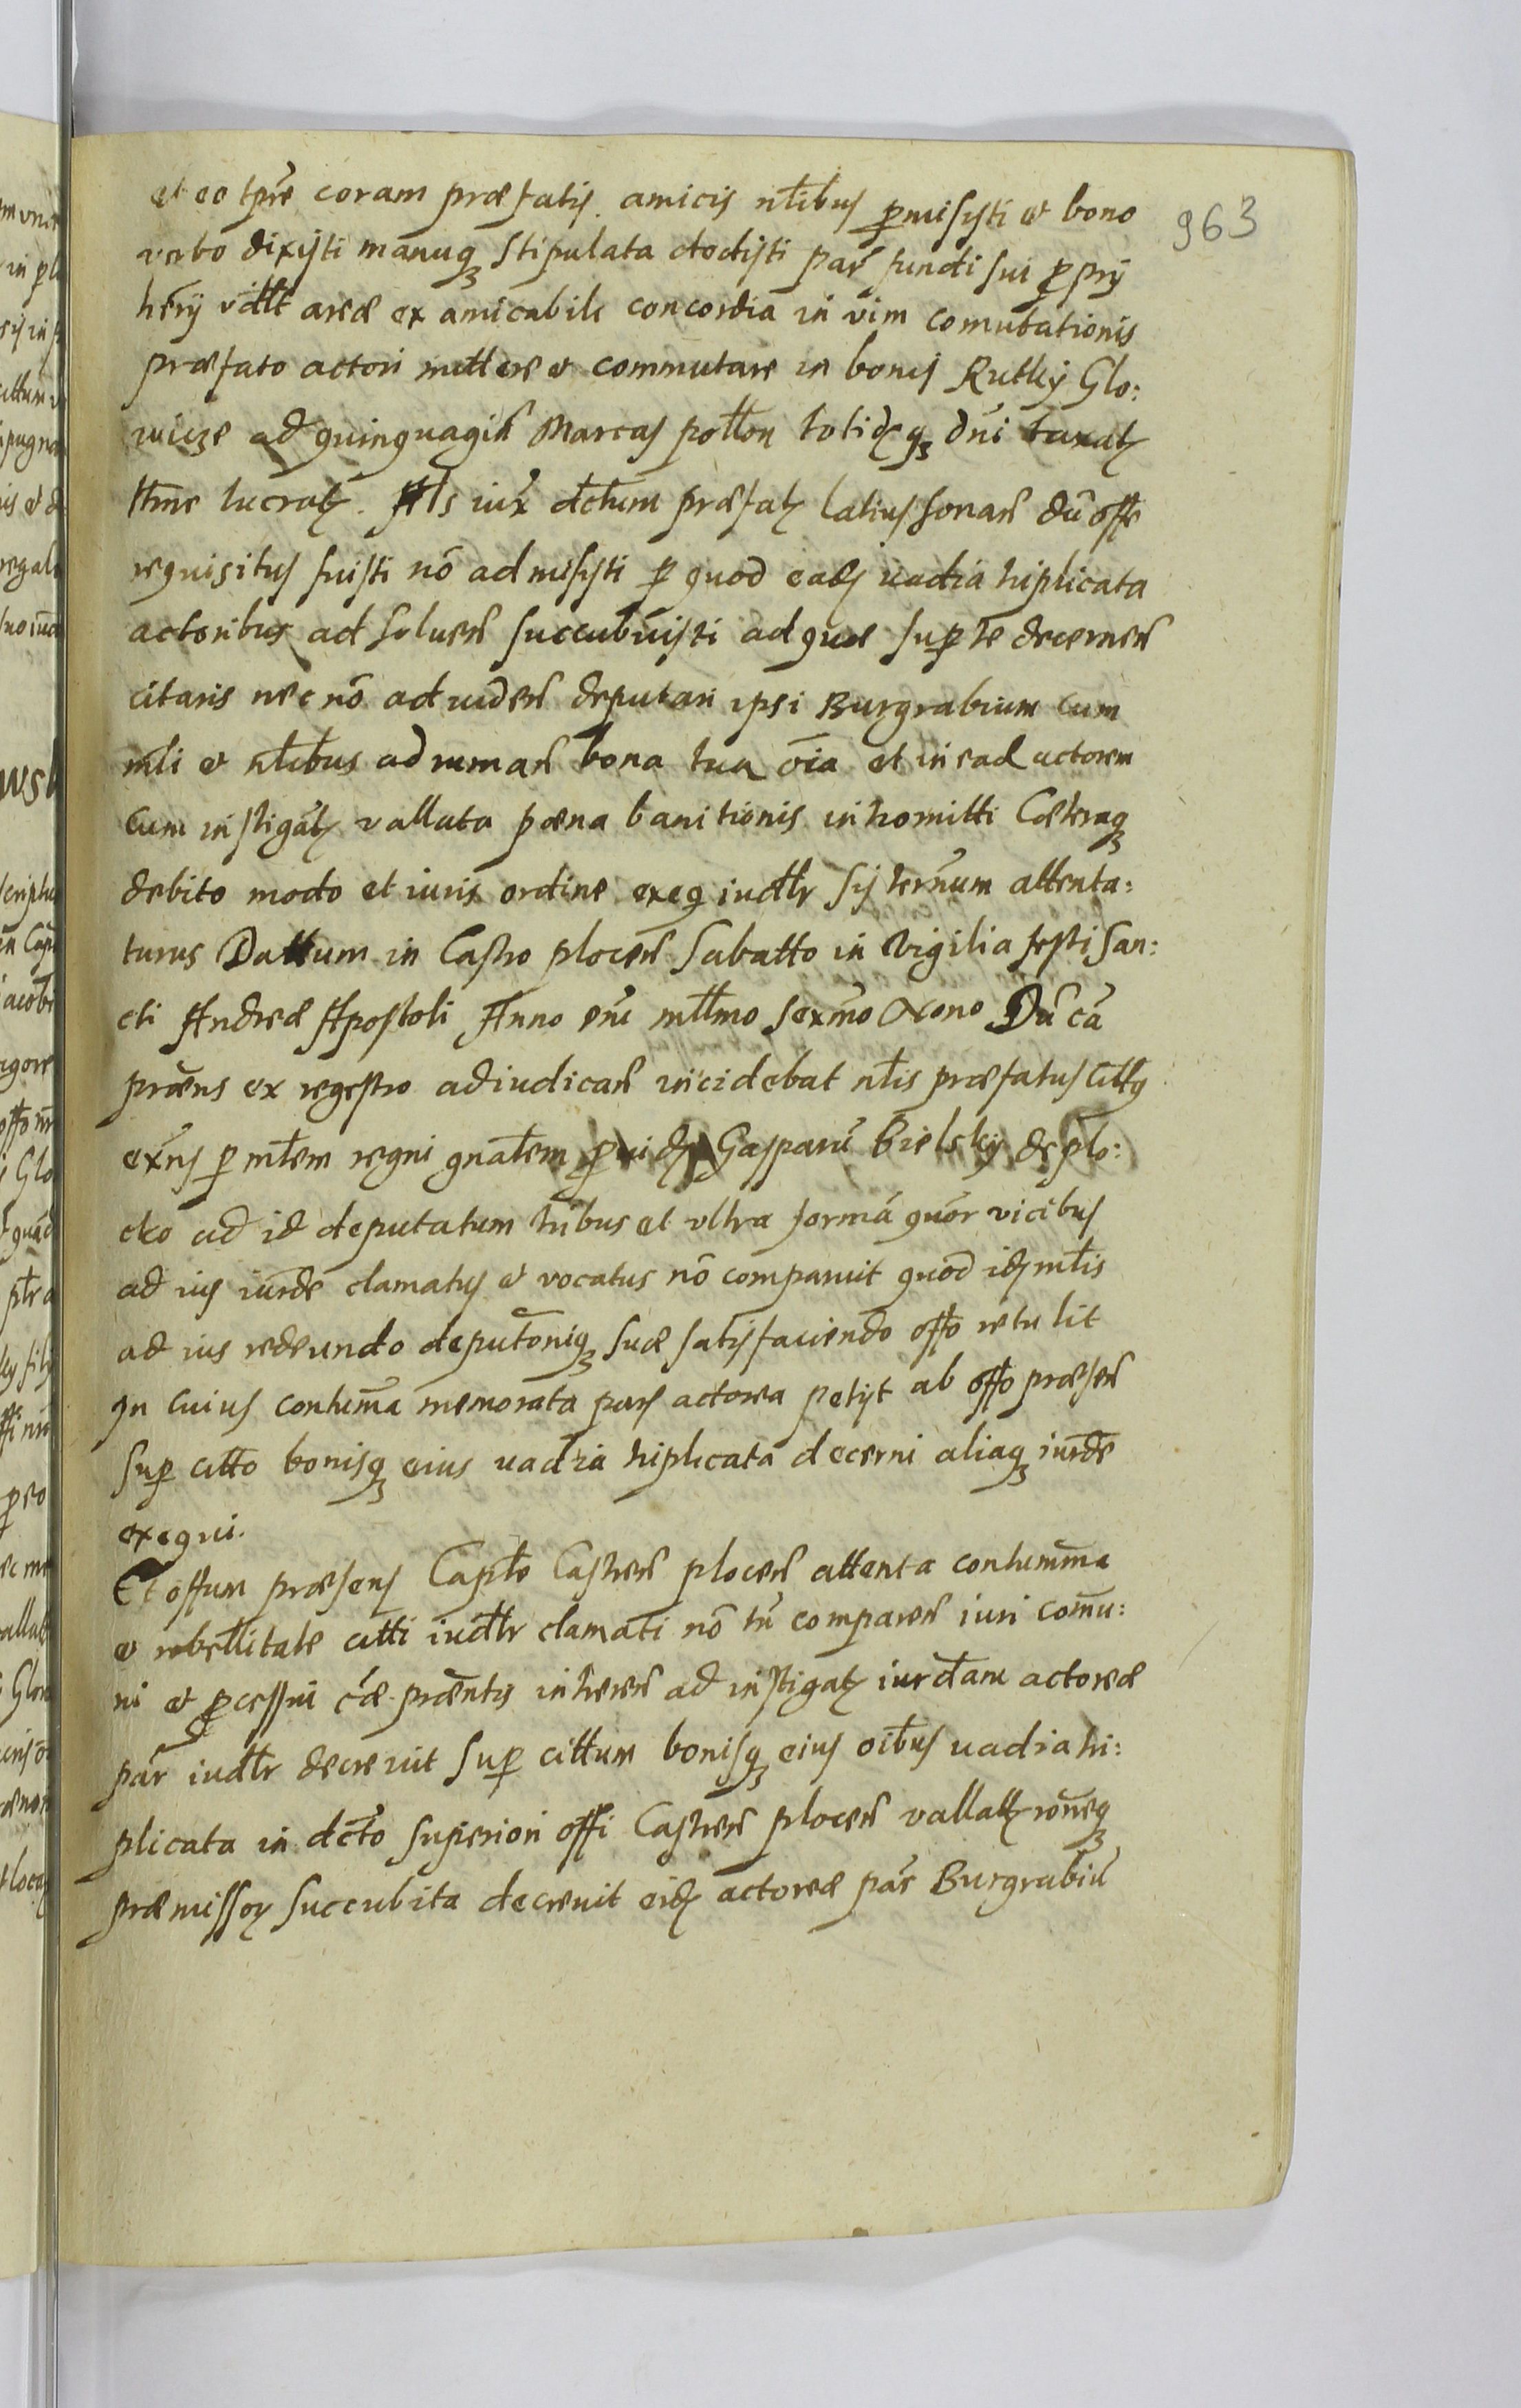 et eo tpre coram præfatis amicis nłibus pmisisti et bono
verbo dixisti manuq stipulata dedisti par fundi sui pprij
herij vdlt areæ ex amicabili concordia in vim comutationis
præfato actori mittere et commutare in bonis Rutky Glo:
wicze ad quinquagin Marcas pollon totideq dni taxat
lucrat. Als iux dctum præfat latius sonan du offe
requisitus fuisti nō admisisti p quod eade vadia triplicata
actoribus ad soluen succubuisti ad quæ sup te decernen
citaris nec nō ad viden deputari ipsi Burgrabium cum
mli et nłibus ad ruman bona tua oīa et in ead actorem
cum instigat vallata pæna banitionis intromitti Cæteraq
debito modo et iuris ordine exeq iudlr sis ternum attenta:
turus Dattum in Castro plocen Sabatto in Vigilia festi San:
cti Andreæ Apostoli Anno eiu mllmo sexmo Nono Dū cā
præns ex regestro adiudican incidebat nłis præfatus citts
exns p młem regni gnałem puid Gasparū Bielsky de plo:
cko ad id deputatum tribus et vltra formā quor vicibus
ad ius iurde clamatus et vocatus nō comparuit quod id młis
ad ius redeundo deputoniq suæ satisfaciendo offo retulit
In cuius contuma memorata pars actorea petijt ab offo præsen
sup citto bonisq eius vadia triplicata decerni aliaq iurde
exequi.
Et offum præsens Capłe Castren plocen attenta contumma
et rebellitate citti iudlr clamati nō tn comparen iuri comu:
ni et pcessui cæ præntis inheren ad instigat iurdam actoreæ
par iudlr decreuit sup cittum bonisq eius oibus vadia tri:
plicata in dcto superiori offi Castren plocen vallat roneq
præmissor succubita decreuit eid actoreæ par Burgrabiū
963